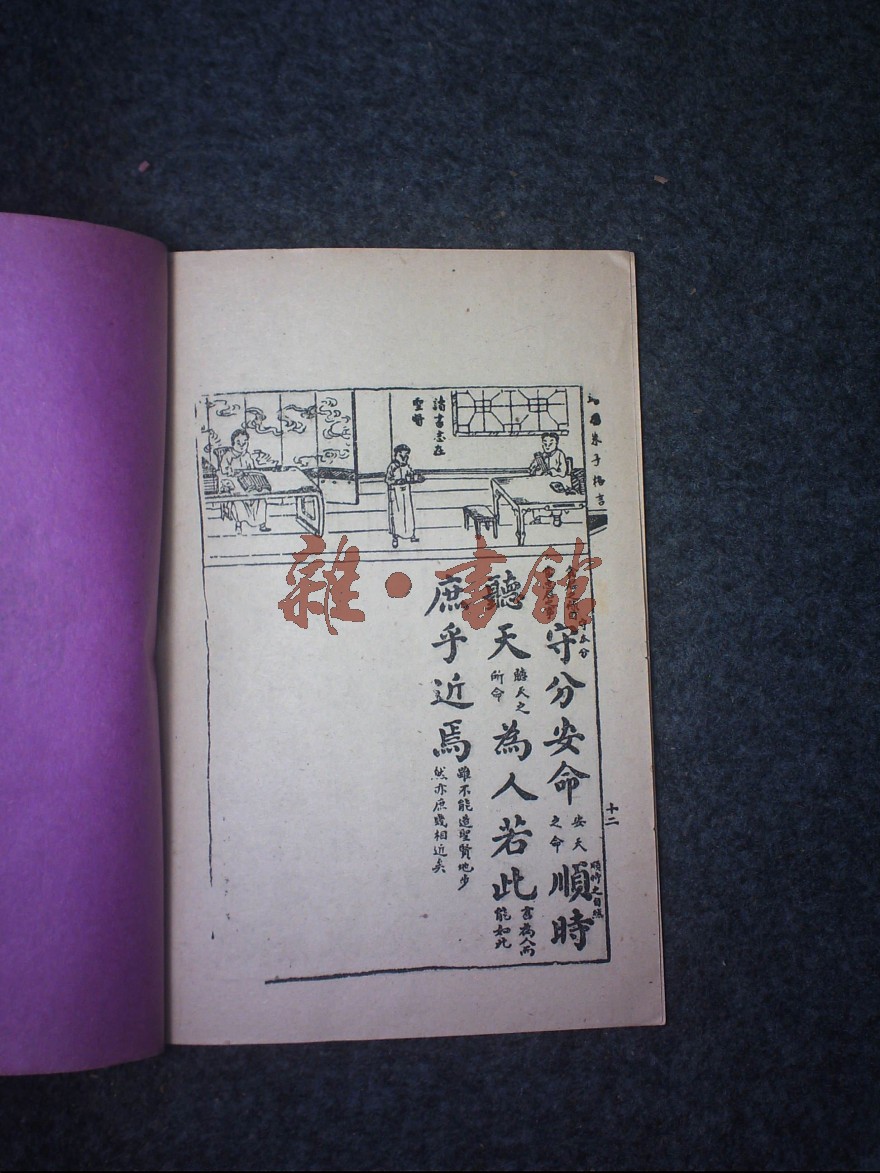 朱子格言
讀書志在
聖賢
守分安命
安天
之命
順時
順時之自然
聽天
聽天之
所命
為人若此
言為人而
能如此
庶乎近焉
雖不能造聖賢地步
然亦庶幾相近矣
十二
雜·書館